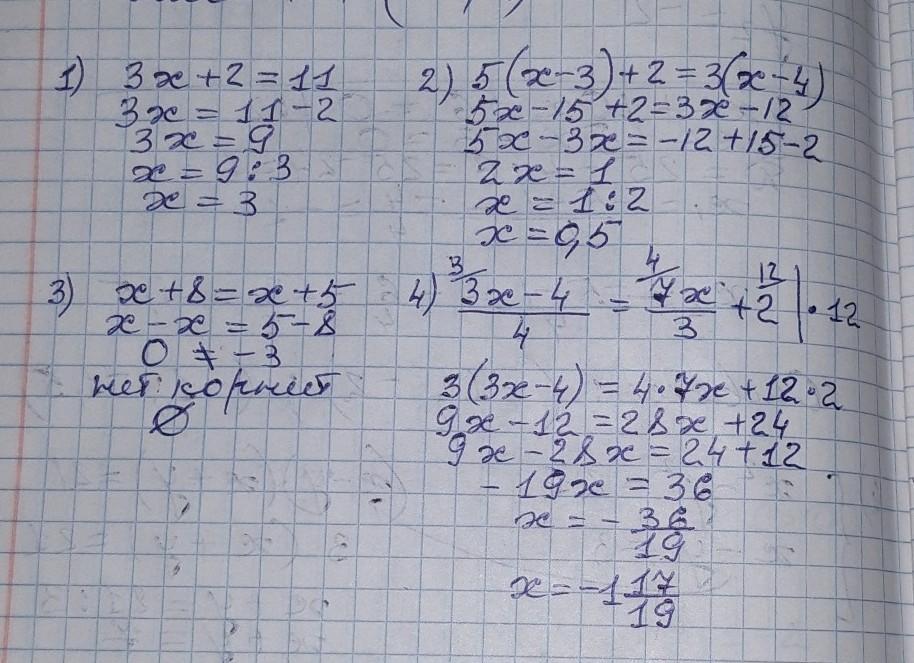 1) 3x + 2 = 11
3x = 11 - 2
3x = 9
x = 9 : 3
x = 3
2) 5(x-3) + 2 = 3(x-4)
5x - 15 + 2 = 3x - 12
5x - 3x = -12 + 15 - 2
2x = 1
x = 1 : 2
x = 0,5
3) x + 8 = x + 5
x - x = 5 - 8
0 ≠ -3
нет корней
∅
4) ³⁄ (3x - 4)/4 = ⁴⁄ 7x/3 + ¹²⁄ 2 | · 12
3(3x-4) = 4·7x + 12·2
9x - 12 = 28x + 24
9x - 28x = 24 + 12
-19x = 36
x = - 36/19
x = -1 17/19